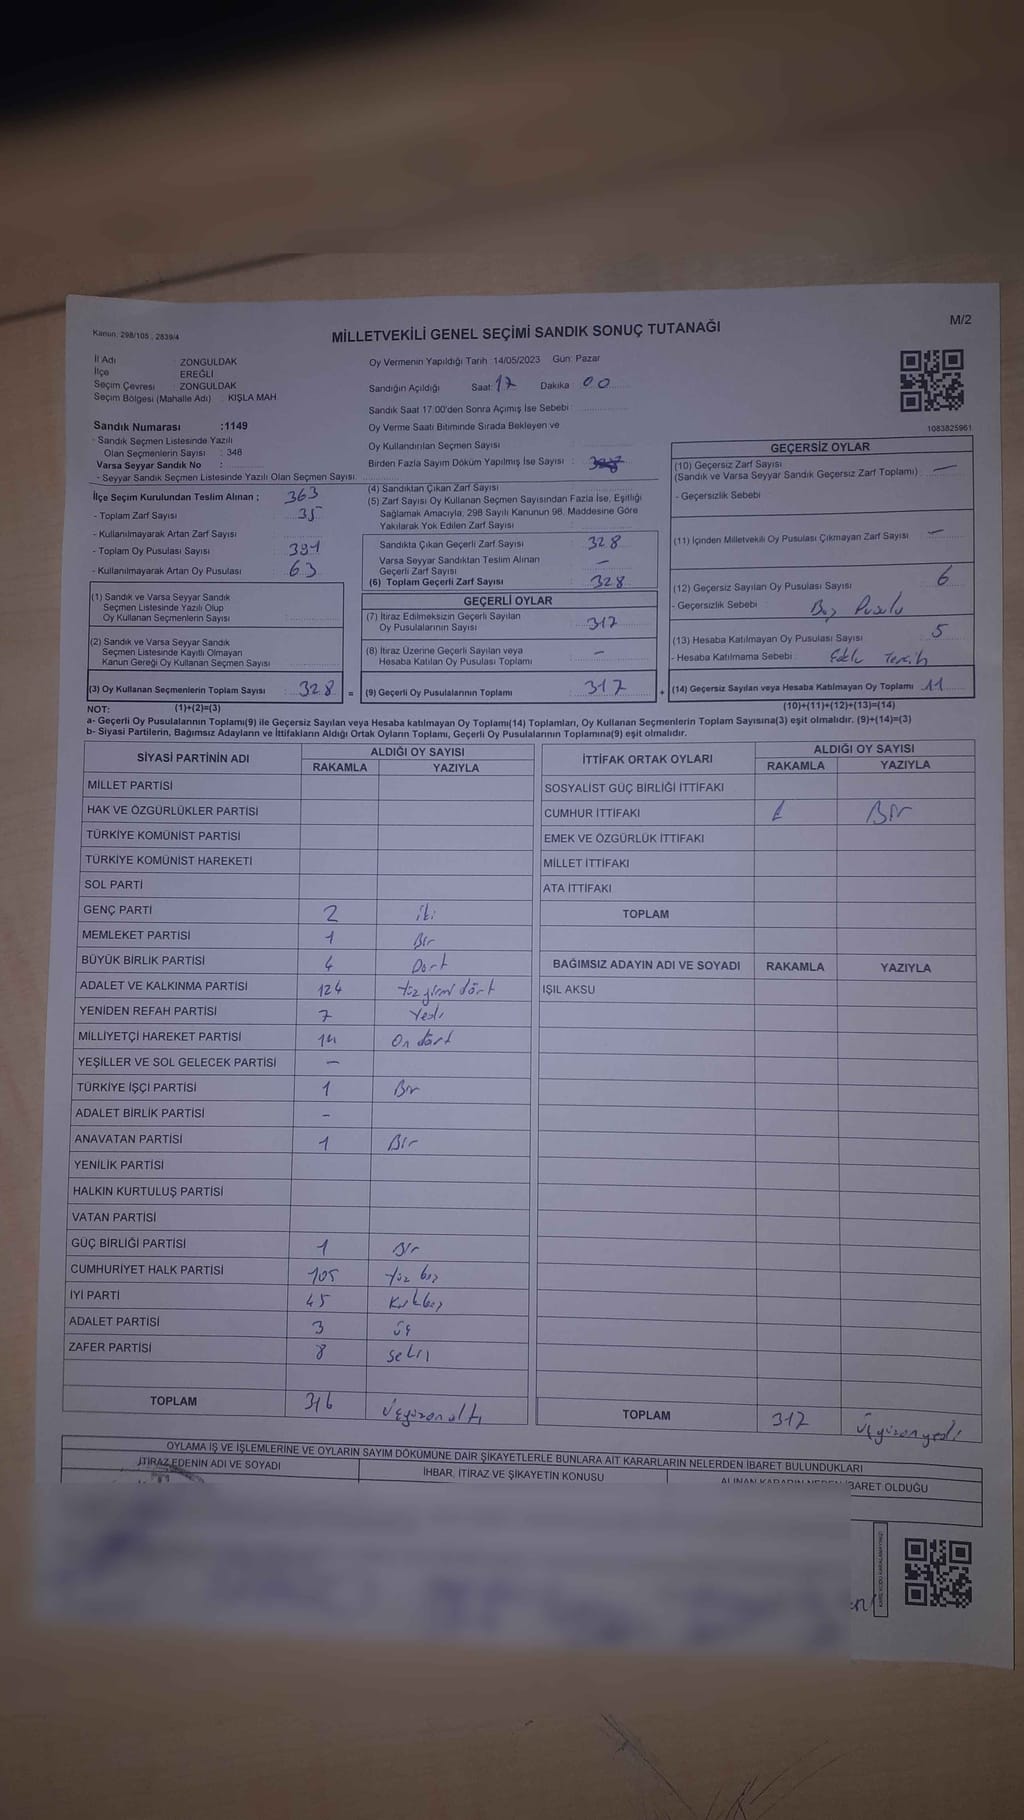 Kanun: 298/105 , 2839/4
MİLLETVEKİLİ GENEL SEÇİMİ SANDIK SONUÇ TUTANAĞI
M/2
İl Adı : ZONGULDAK
İlçe : EREĞLİ
Seçim Çevresi : ZONGULDAK
Seçim Bölgesi (Mahalle Adı) : KIŞLA MAH.
Sandık Numarası :1149
- Sandık Seçmen Listesinde Yazılı
Olan Seçmenlerin Sayısı : 348
Varsa Seyyar Sandık No :
- Seyyar Sandık Seçmen Listesinde Yazılı Olan Seçmen Sayısı:
Oy Vermenin Yapıldığı Tarih :14/05/2023 Gün: Pazar
Sandığın Açıldığı Saat: 17 Dakika : 00
Sandık Saat 17:00'den Sonra Açımış İse Sebebi :
Oy Verme Saati Bitiminde Sırada Bekleyen ve
Oy Kullandırılan Seçmen Sayısı :
Birden Fazla Sayım Döküm Yapılmış İse Sayısı :
1083825961
İlçe Seçim Kurulundan Teslim Alınan ; 363
- Toplam Zarf Sayısı : 35
- Kullanılmayarak Artan Zarf Sayısı :
- Toplam Oy Pusulası Sayısı : 391
- Kullanılmayarak Artan Oy Pusulası : 63
(1) Sandık ve Varsa Seyyar Sandık
Seçmen Listesinde Yazılı Olup
Oy Kullanan Seçmenlerin Sayısı :
(2) Sandık ve Varsa Seyyar Sandık
Seçmen Listesinde Kayıtlı Olmayan
Kanun Gereği Oy Kullanan Seçmen Sayısı :
(3) Oy Kullanan Seçmenlerin Toplam Sayısı : 328 =
(4) Sandıktan Çıkan Zarf Sayısı :
(5) Zarf Sayısı Oy Kullanan Seçmen Sayısından Fazla İse, Eşitliği
Sağlamak Amacıyla, 298 Sayılı Kanunun 98. Maddesine Göre
Yakılarak Yok Edilen Zarf Sayısı :
Sandıkta Çıkan Geçerli Zarf Sayısı : 328
Varsa Seyyar Sandıktan Teslim Alınan
Geçerli Zarf Sayısı : —
(6) Toplam Geçerli Zarf Sayısı : 328
GEÇERLİ OYLAR
(7) İtiraz Edilmeksizin Geçerli Sayılan
Oy Pusulalarının Sayısı : 317
(8) İtiraz Üzerine Geçerli Sayılan veya
Hesaba Katılan Oy Pusulası Toplamı : —
(9) Geçerli Oy Pusulalarının Toplamı : 317 +
GEÇERSİZ OYLAR
(10) Geçersiz Zarf Sayısı
(Sandık ve Varsa Seyyar Sandık Geçersiz Zarf Toplamı) : —
- Geçersizlik Sebebi :
(11) İçinden Milletvekili Oy Pusulası Çıkmayan Zarf Sayısı : —
(12) Geçersiz Sayılan Oy Pusulası Sayısı : 6
- Geçersizlik Sebebi : Boş Pusula
(13) Hesaba Katılmayan Oy Pusulası Sayısı : 5
- Hesaba Katılmama Sebebi : Fazla Tercih
(14) Geçersiz Sayılan veya Hesaba Katılmayan Oy Toplamı : 11
NOT: (1)+(2)=(3)
(10)+(11)+(12)+(13)=(14)
a- Geçerli Oy Pusulalarının Toplamı(9) ile Geçersiz Sayılan veya Hesaba katılmayan Oy Toplamı(14) Toplamları, Oy Kullanan Seçmenlerin Toplam Sayısına(3) eşit olmalıdır. (9)+(14)=(3)
b- Siyasi Partilerin, Bağımsız Adayların ve İttifakların Aldığı Ortak Oyların Toplamı, Geçerli Oy Pusulalarının Toplamına(9) eşit olmalıdır.
SİYASİ PARTİNİN ADI ALDIĞI OY SAYISI
RAKAMLA YAZIYLA
MİLLET PARTİSİ
HAK VE ÖZGÜRLÜKLER PARTİSİ
TÜRKİYE KOMÜNİST PARTİSİ
TÜRKİYE KOMÜNİST HAREKETİ
SOL PARTİ
GENÇ PARTİ 2 iki
MEMLEKET PARTİSİ 1 Bir
BÜYÜK BİRLİK PARTİSİ 4 Dört
ADALET VE KALKINMA PARTİSİ 124 Yüz yirmi dört
YENİDEN REFAH PARTİSİ 7 Yedi
MİLLİYETÇİ HAREKET PARTİSİ 14 On dört
YEŞİLLER VE SOL GELECEK PARTİSİ —
TÜRKİYE İŞÇİ PARTİSİ 1 Bir
ADALET BİRLİK PARTİSİ -
ANAVATAN PARTİSİ 1 Bir
YENİLİK PARTİSİ
HALKIN KURTULUŞ PARTİSİ
VATAN PARTİSİ
GÜÇ BİRLİĞİ PARTİSİ 1 Bir
CUMHURİYET HALK PARTİSİ 105 Yüz beş
İYİ PARTİ 45 Kırkbeş
ADALET PARTİSİ 3 üç
ZAFER PARTİSİ 8 Sekiz
TOPLAM 316 Üçyüzonaltı
İTTİFAK ORTAK OYLARI ALDIĞI OY SAYISI
RAKAMLA YAZIYLA
SOSYALİST GÜÇ BİRLİĞİ İTTİFAKI
CUMHUR İTTİFAKI 1 Bir
EMEK VE ÖZGÜRLÜK İTTİFAKI
MİLLET İTTİFAKI
ATA İTTİFAKI
TOPLAM
BAĞIMSIZ ADAYIN ADI VE SOYADI RAKAMLA YAZIYLA
IŞIL AKSU
TOPLAM 317 Üçyüzonyedi
OYLAMA İŞ VE İŞLEMLERİNE VE OYLARIN SAYIM DÖKÜMÜNE DAİR ŞİKAYETLERLE BUNLARA AİT KARARLARIN NELERDEN İBARET BULUNDUKLARI
İTİRAZ EDENİN ADI VE SOYADI İHBAR, İTİRAZ VE ŞİKAYETİN KONUSU ALINAN KARARIN NEDEN İBARET OLDUĞU